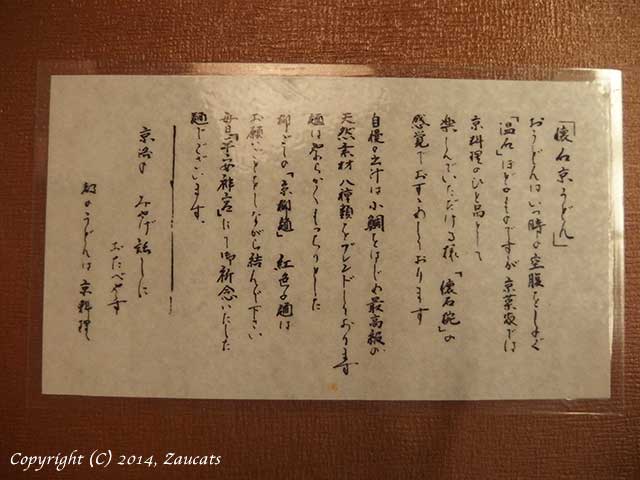 「懐石京うどん」
おうどんはいつ時の空腹をしのぐ
「温石」ほどのものですが 京菜家では
京料理のひと品として
楽しんでいただける様「懐石椀」の
感覚でおすすめしております
自慢の出汁は小鯛をはじめ最高級の
天然素材八種類をブレンドしております
麺は柔らかくもっちりとした
柳ごしの「京柳麺」紅色の麺は
お願いごとをしながら結んで下さい
毎日「平安神宮」にて御祈念いたした
麺でございます。
京洛の みやげ話しに
おたべやす
都のうどんは 京料理
Copyright (C) 2014, Zaucats